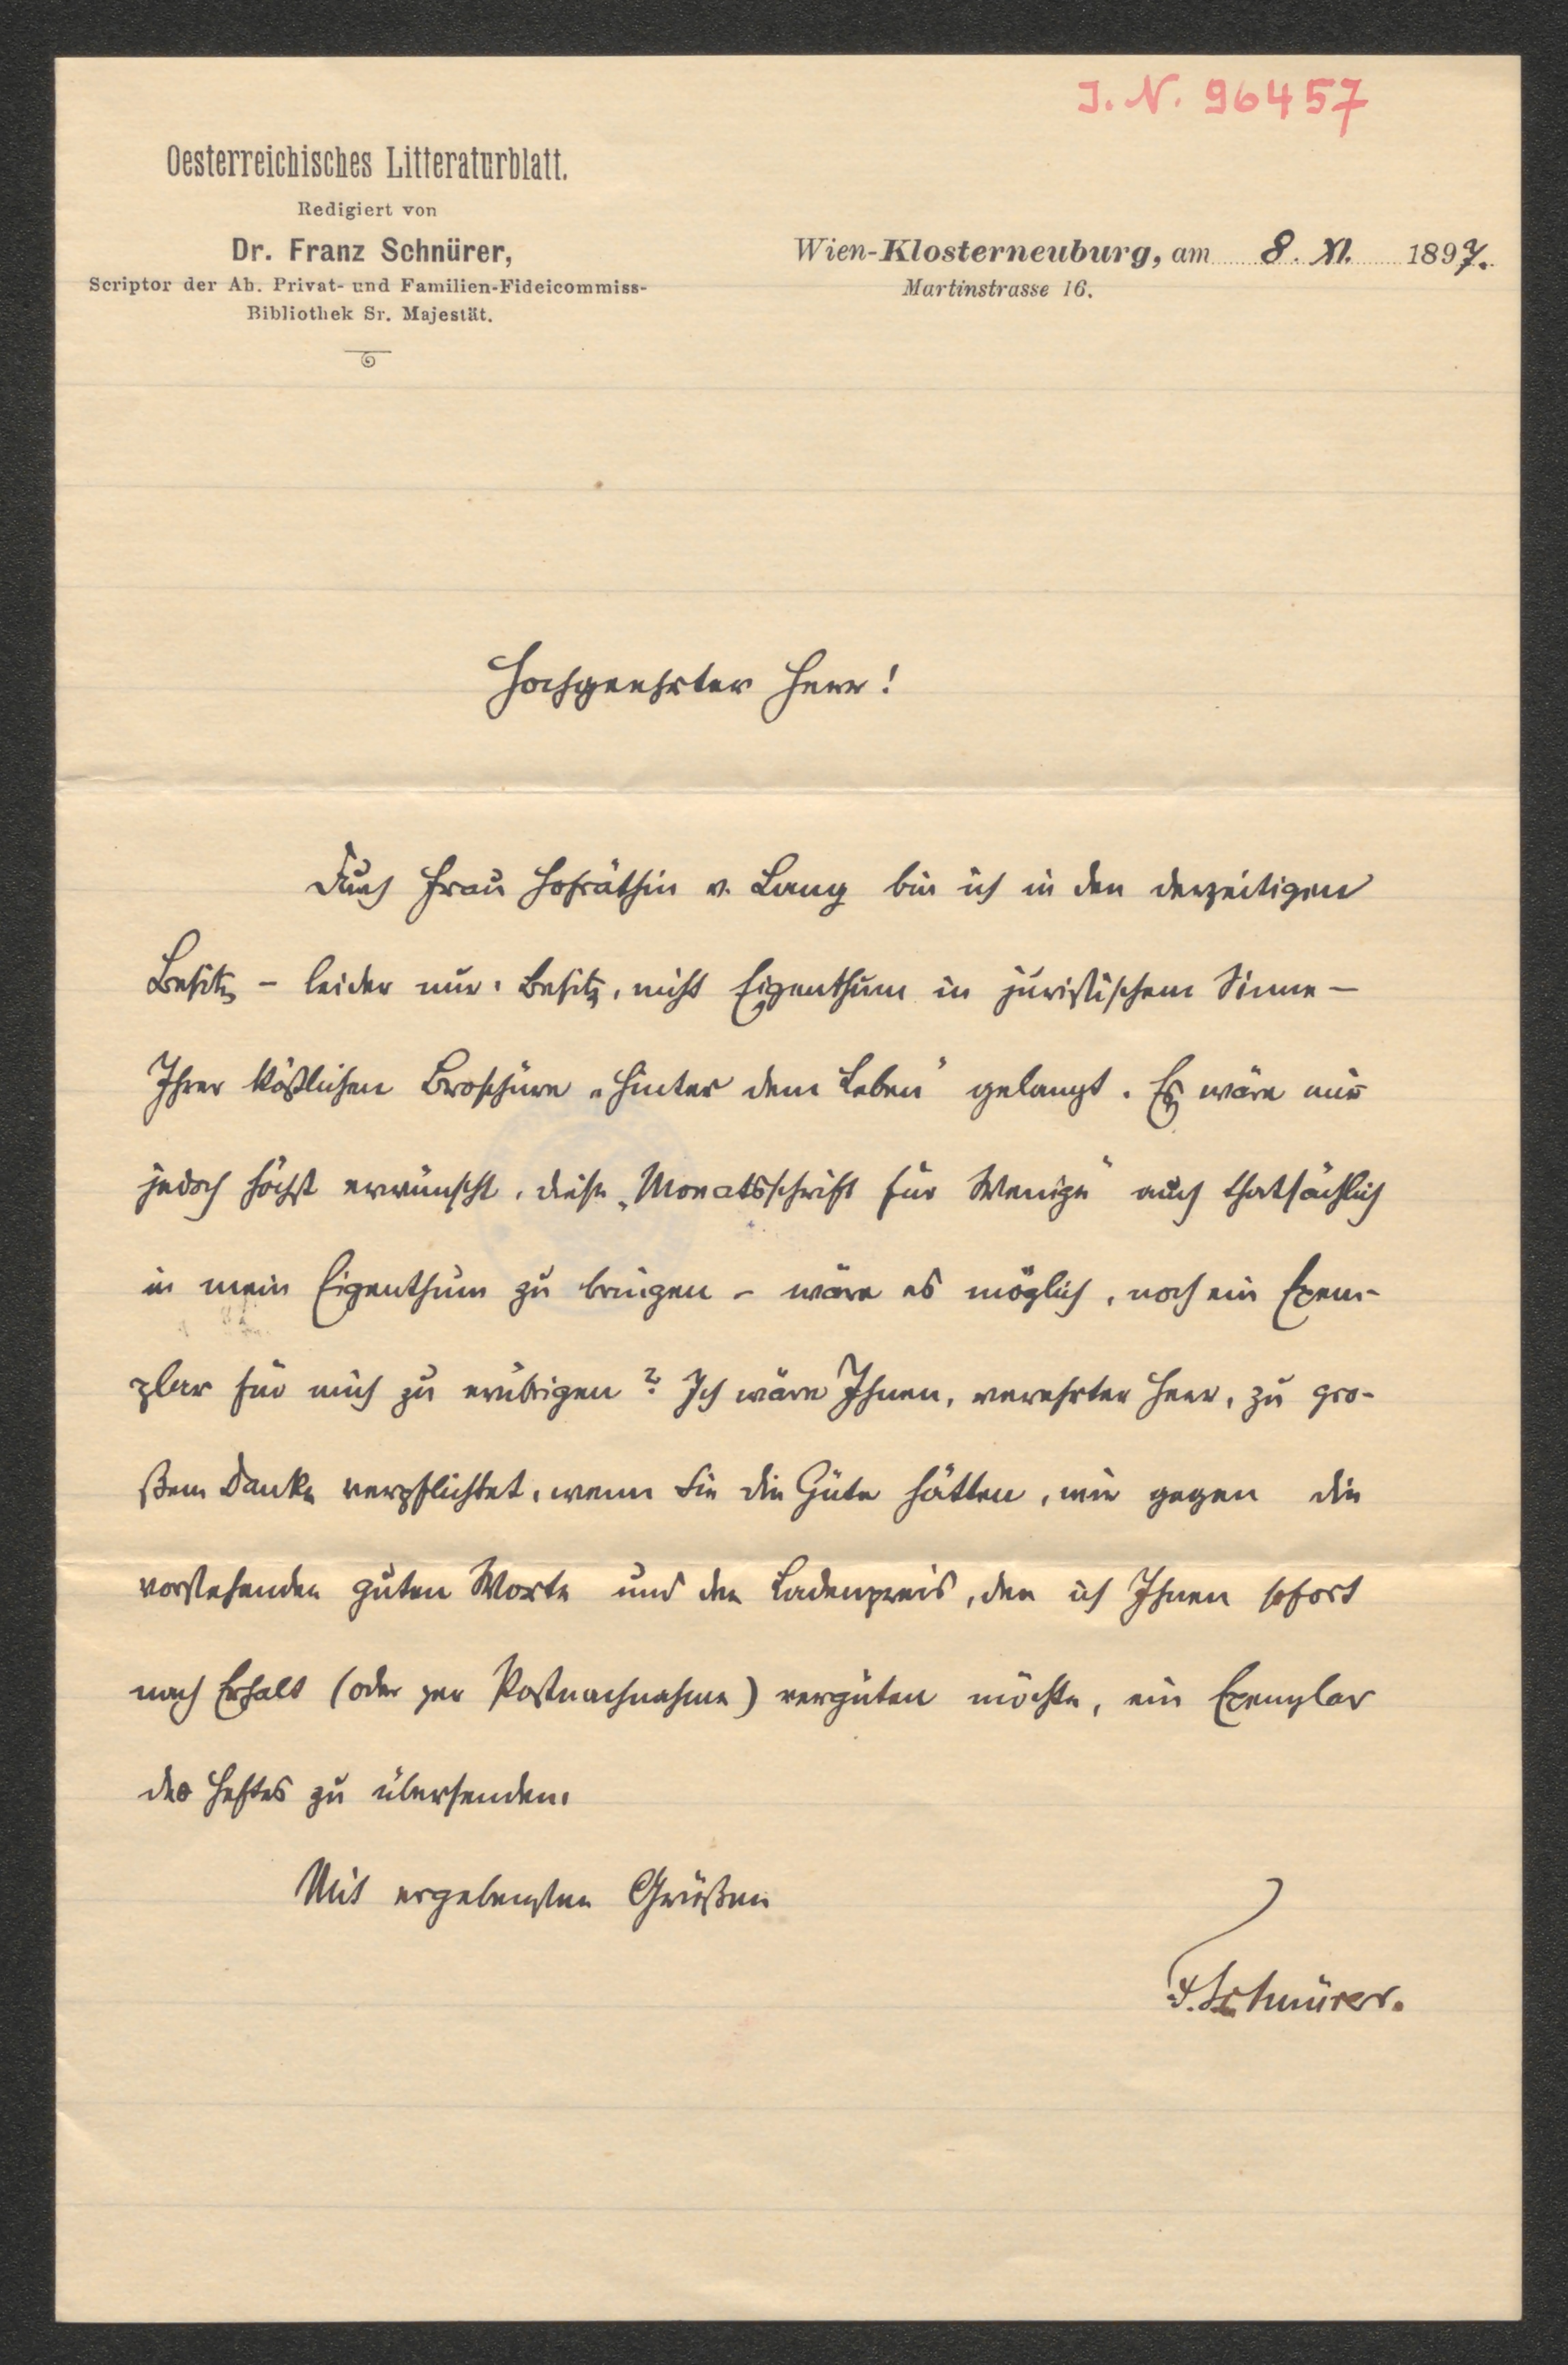 J. N. 96457
Oesterreichisches Litteraturblatt.
Redigiert von
Dr. Franz Schnürer,
Scriptor der Ah. Privat- und Familien-Fideicommiss-
Bibliothek Sr. Majestät.
Wien-Klosterneuburg, am 8. XI. 1897.
Martinstrasse 16.
Hochgeehrter Herr!
Durch Frau Hofräthin v. Lang bin ich in den derzeitigen
Besitz – leider nur: Besitz, nicht Eigenthum in juristischem Sinne –
Ihrer köstlichen Broschüre „Hinter dem Leben" gelangt. Es wäre mir
jedoch höchst erwünscht, diese „Monatsschrift für Wenige" auch thatsächlich
in mein Eigenthum zu bringen – wäre es möglich, noch ein Exem-
plar für mich zu erübrigen? Ich wäre Ihnen, verehrter Herr, zu gro-
ßem Danke verpflichtet, wenn Sie die Güte hätten, mir gegen die
vorstehenden guten Worte und den Ladenpreis, den ich Ihnen sofort
nach Erhalt (oder per Postnachnahme) vergüten möchte, ein Exemplar
des Heftes zu übersenden.
Mit ergebensten Grüßen
F. Schnürer.